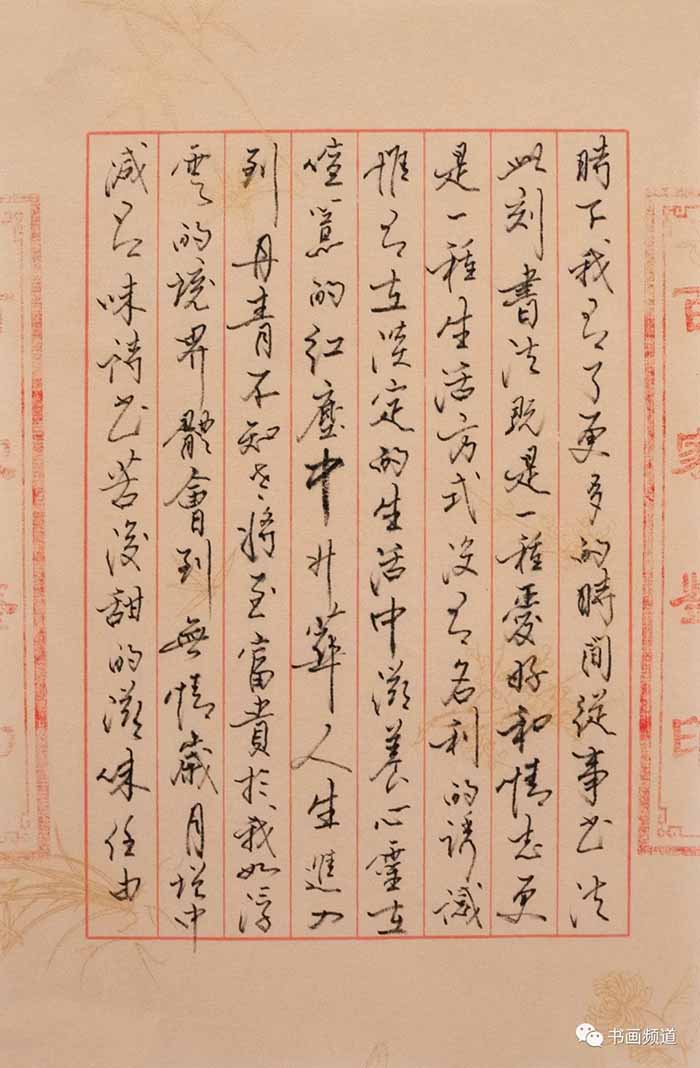 時下我有了更多的時間從事书法
此刻書法既是一種愛好和情志更
是一種生活方式没有名利的誘惑
惟有在淡定的生活中滋養心靈在
喧嚣的紅塵中升華人生進入
到丹青不知老將至富貴於我如浮
雲的境界體會到無情歲月增中
減有味詩书苦後甜的滋味任由
书画频道